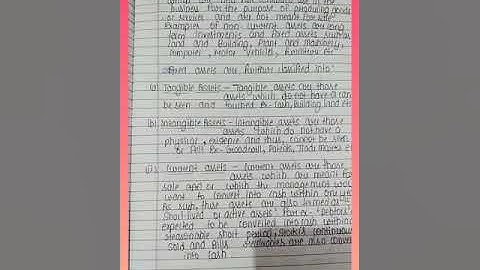 business for the purpose of producing goods
or services and are not meant for sale
Examples of non current assets are long
term investments and fixed assets such as
land and Building, Plant and Machinery,
computer, Motor Vehicles, Furniture etc
Fixed assets are further classified into:
(a) Tangible Assets - Tangible assets are those
assets which do not have a can
be seen and touched Ex- Cash, Building land etc
(b) Intangible Assets - Intangible assets are those
assets which do not have a
physical existence and thus, cannot be seen
& felt Ex- Goodwill, Patents, Trademarks etc
Current assets - Current assets are those
assets which are meant for
sale or which the management would
want to convert into cash within one
As such, these assets are also termed as
Short-lived or active assets For ex- Debtors
expected to be converted into cash within
reasonable short period, stock is continuous
sold and bills are also conver
into cash